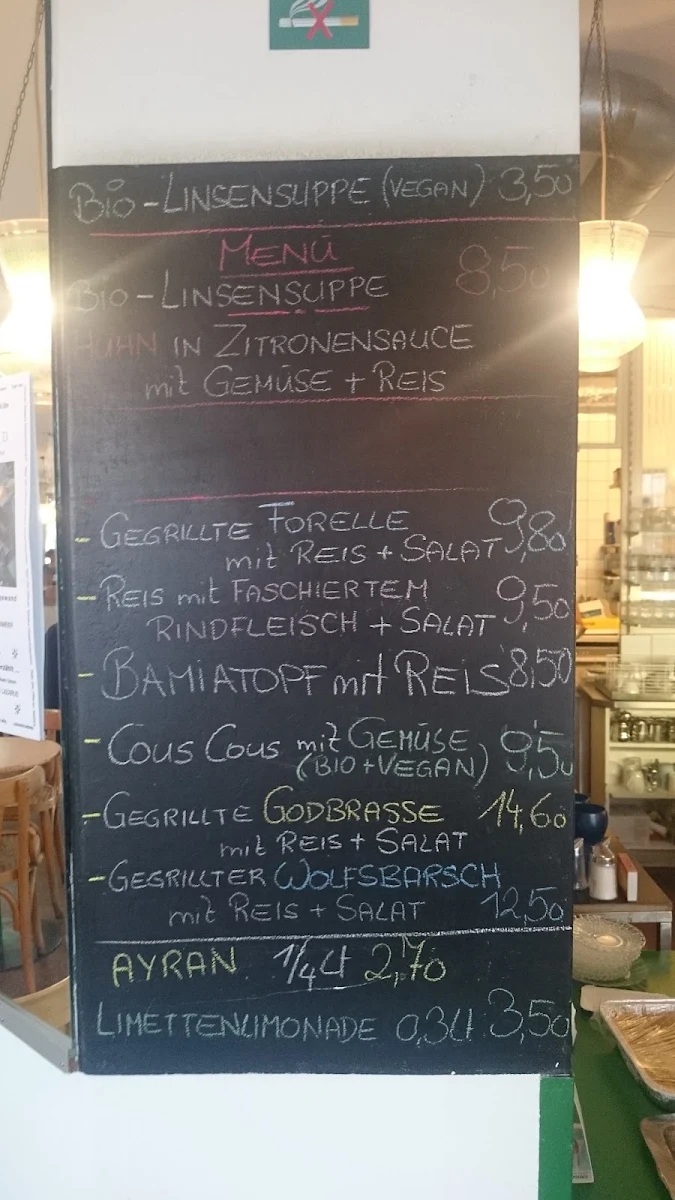 BiO-LINSENSUPPE (VEGAN) 3,50
MENÜ
BiO-LINSENSUPPE 8,50
HUHN IN ZITRONENSAUCE
mit GEMÜSE + REIS
- GEGRILLTE FORELLE 9,80
mit REIS + SALAT
- REIS mit FASCHIERTEM 9,50
RINDFLEISCH + SALAT
- BAMIATOPF mit REIS 8,50
- COUS COUS mit GEMÜSE 9,50
(BIO+VEGAN)
- GEGRILLTE GODBRASSE 14,60
mit REIS + SALAT
- GEGRILLTER WOLFSBARSCH
mit REIS + SALAT 12,50
AYRAN 1/4 lt 2,70
LIMETTENLIMONADE 0,3 lt 3,50